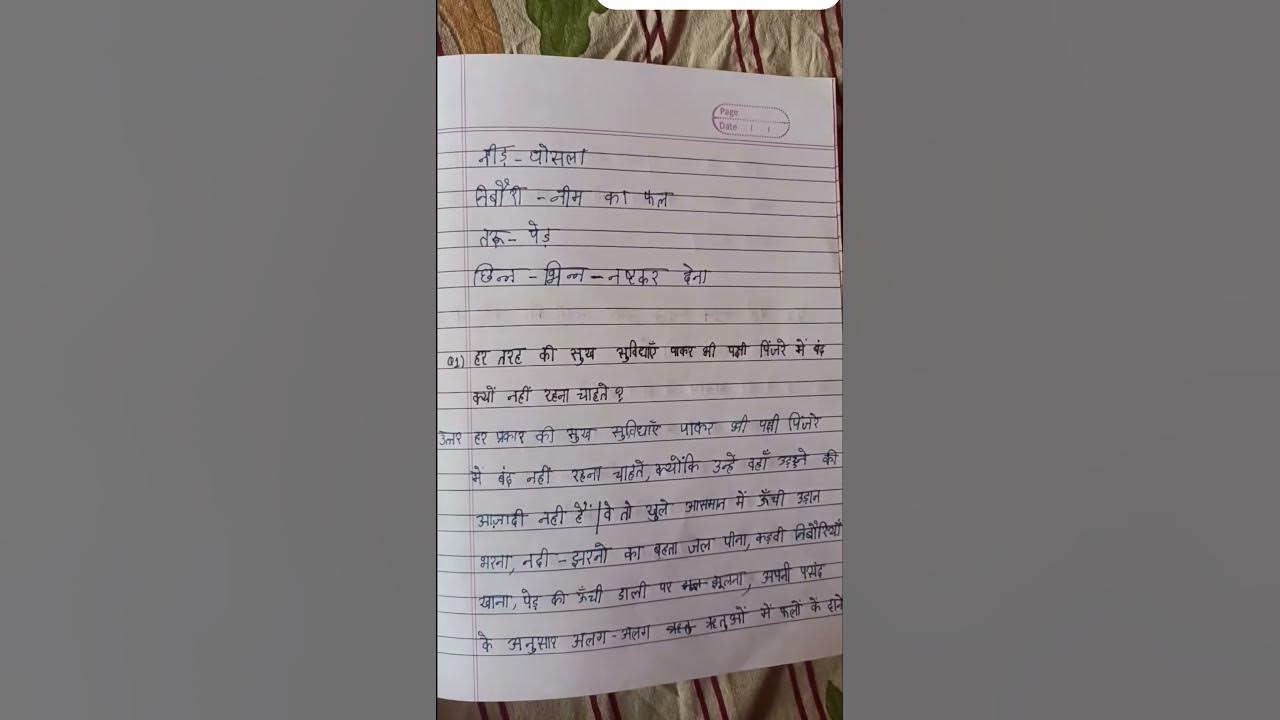 Page
Date / /
नीड़ - घोसला
निबौरी - नीम का फल
तरू - पेड़
छिन्न - भिन्न - नष्टकर देना
Q1) हर तरह की सुख सुविधाएँ पाकर भी पक्षी पिंजरे में बंद
क्यों नहीं रहना चाहते ?
उत्तर हर प्रकार की सुख सुविधाएँ पाकर भी पक्षी पिंजरे
में बंद नहीं रहना चाहते, क्योंकि उन्हे वहाँ उड़ने की
आज़ादी नही हैं | वे तो खुले आसमान में ऊँची उड़ान
भरना, नदी - झरनो का बहता जल पीना, कड़वी निबौरियाँ
खाना, पेड़ की ऊँची डाली पर झूलना, अपनी पसंद
के अनुसार अलग-अलग ऋतुओं में फलों कें दाने